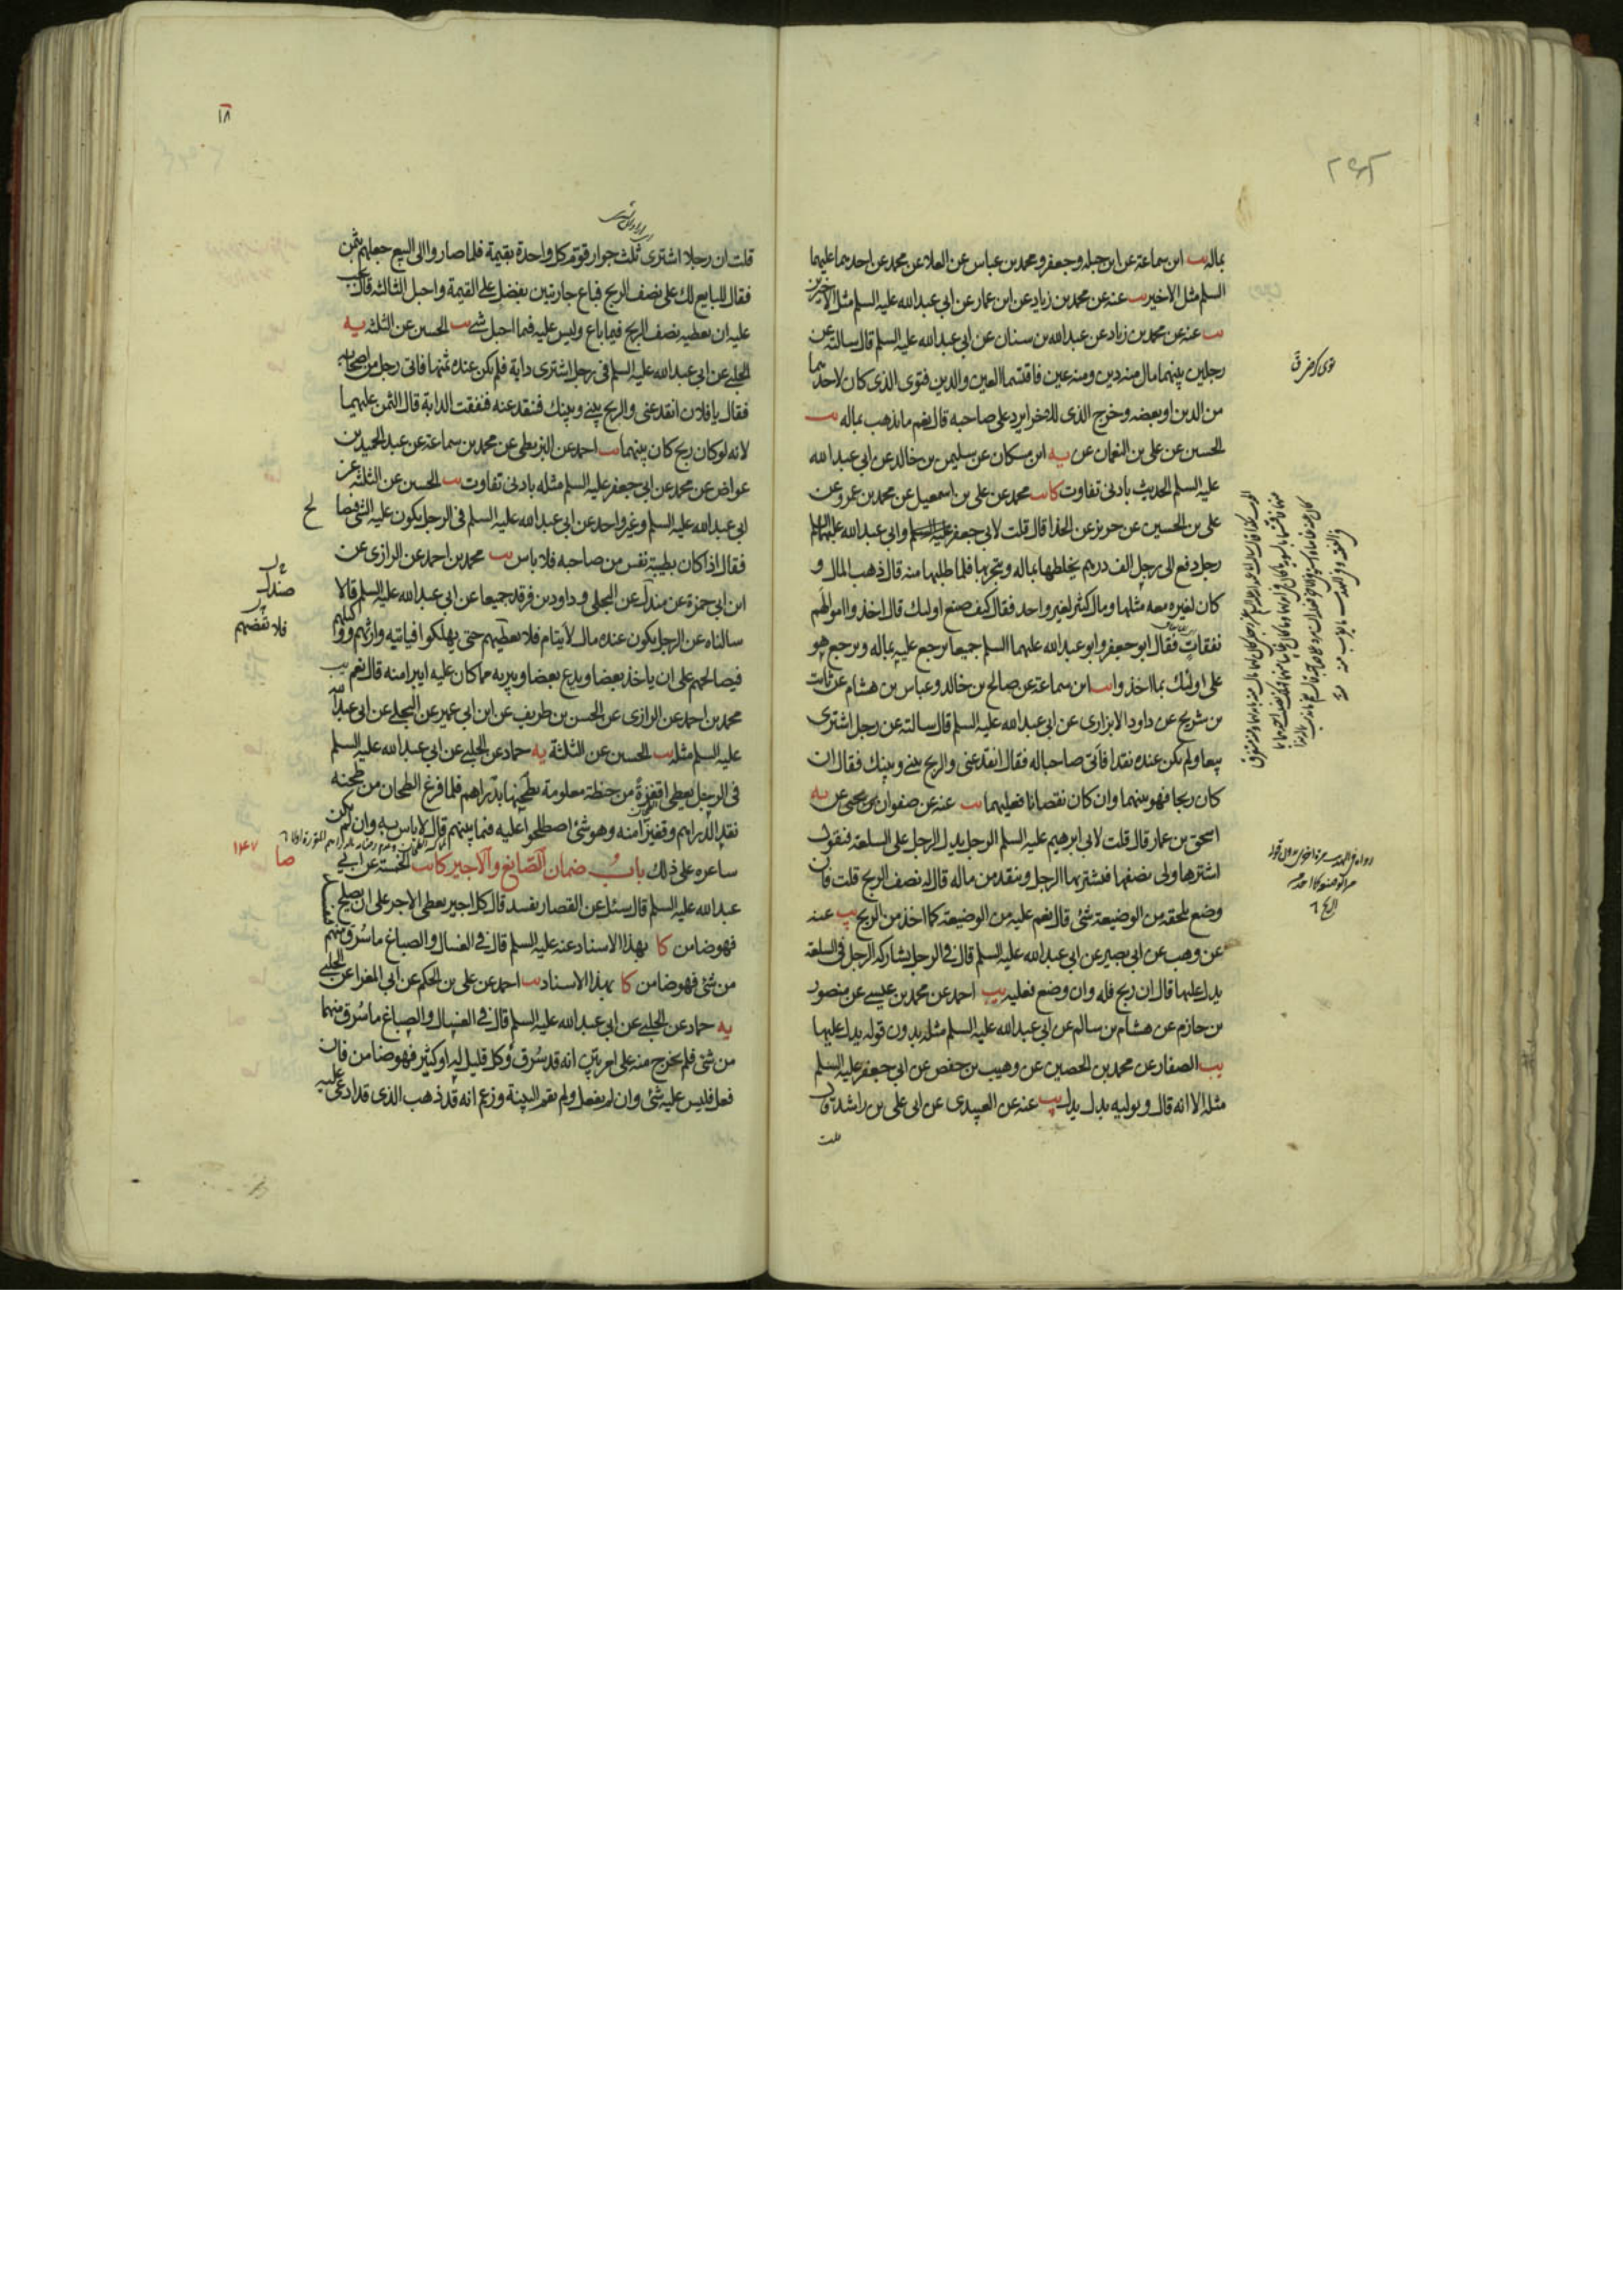 بماله يب ابن سماعة عن ابن جبله وجعفر ومحمد بن عباس عن العلا عن محمد عن احدهما عليهما
السلم مثل الاخير يب عنه عن محمد بن زياد عن ابن عمار عن ابي عبد الله عليه السلم مثل الاخيرين
يب عنه عن محمد بن زياد عن عبد الله بن سنان عن ابي عبد الله عليه السلم قال سالته عن
رجلين بينهما مال منه دين ومنه عين فاقتسما العين والدين فتوى الذى كان لاحدهما
من الدين او بعضه وخرج الذى للاخر ايرد على صاحبه قال نعم ما يذهب بماله يب
الحسين عن على بن النعمان عن يه ابن مسكان عن سليمن بن خالد عن ابي عبد الله
عليه السلم الحديث بادنى تفاوت كا يب محمد عن على بن اسمعيل عن محمد بن عمرو عن
على بن الحسين عن حريز عن الحذا قال قلت لابي جعفر وابي عبد الله عليهما السلم
رجل دفع الى رجل الف درهم يخلطها بماله ويتجر بها فلما طلبها منه قال ذهب المال و
كان لغيره معه مثلها ومال كثير لغير واحد فقال كيف صنع اولئك قال اخذوا اموالهم
نفقات فقال ابو جعفر وابو عبد الله عليهما السلم جميعا يرجع عليه بماله ويرجع هو
على اولئك بما اخذوا يب ابن سماعة عن صالح بن خالد وعباس بن هشام عن ثابت
بن شريح عن داود الابزارى عن ابي عبد الله عليه السلم قال سالته عن رجل اشترى
بيعا ولم يكن عنده نقد فاتى صاحبا له فقال انقد عنى والربح بينى وبينك فقال ان
كان ربحا فهو بينهما وان كان نقصانا فعليهما يب عنه عن صفوان بن يحيى عن يه
اسحق بن عمار قال قلت لابي ابرهيم عليه السلم الرجل يدل الرجل على السلعة فيقول
اشترها ولى نصفها فيشتريها الرجل وينقد من ماله قال له نصف الربح قلت فان
وضع يلحقه من الوضيعة شئ قال نعم عليه من الوضيعة كما اخذ من الربح يب عنه
عن وهب عن ابي بصير عن ابي عبد الله عليه السلم قال في الرجل يشاركه الرجل في السلعة
يدل عليها قال ان ربح فله وان وضع فعليه يب احمد عن محمد بن عيسى عن منصور
بن حازم عن هشام بن سالم عن ابي عبد الله عليه السلم مثله بدون قوله يدل عليها
يب الصفار عن محمد بن الحصين عن وهيب بن حفص عن ابي جعفر عليه السلم
مثله الا انه قال ويوليه بدل يدل يب عنه عن العبيدى عن ابي على بن راشد قال
قلت
١٨
قلت ان رجلا اشترى ثلث جوار قوم كل واحدة بقيمة فلما صاروا الى البيع جعلهم بثمن
فقال للبايع لك على نصف الربح فباع جاريتين بفضل على القيمة واحبل الثالثة قال يجب
عليه ان يعطيه نصف الربح فيما باع وليس عليه فيما احبل شئ يب الحسين عن الثلثه يه
الحلبى عن ابي عبد الله عليه السلم في رجل اشترى دابة فلم يكن عنده ثمنها فاتى رجل من اصحابه
فقال يا فلان انقد عنى والربح بينى وبينك فنقد عنه فنفقت الدابة قال الثمن عليهما
لانه لو كان ربح كان بينهما يب احمد عن البزنطى عن محمد بن سماعة عن عبد الحميد بن
عواض عن محمد عن ابي جعفر عليه السلم مثله بادنى تفاوت يب الحسين عن الثلثه عن
ابي عبد الله عليه السلم وغير واحد عن ابي عبد الله عليه السلم في الرجل يكون عليه الشئ فيصا
لح
فقال اذا كان بطيبة نفس من صاحبه فلا باس يب محمد بن احمد عن الرازى عن
ابن ابي حمزة عن مندل عن البجلى وداود بن فرقد جميعا عن ابي عبد الله عليه السلم قالا
صندل
سالناه عن الرجل يكون عنده مال لايتام فلا يعطيهم حتى يهلكوا فياتيه وارثهم ووكيلهم
فيصالحهم على ان ياخذ بعضا ويدع بعضا ويبريه مما كان عليه ايبرا منه قال نعم يب
محمد بن احمد عن الرازى عن الحسن بن طريف عن ابن ابي عمير عن البجلى عن ابي عبد الله
عليه السلم مثله يب الحسين عن الثلثة يه حماد عن الحلبى عن ابي عبد الله عليه السلم
في الرجل يعطى اقفزة من حنطة معلومة يطحنها بدراهم فلما فرغ الطحان من طحنه
نقد الدراهم وقفيزا منه وهو شئ اصطلحوا عليه فيما بينهم قال لا باس به وان لم يكن
ساعره على ذلك باب ضمان الصايغ والاجير كا يب الخمسة عن ابي
صا
١٤٧
عبد الله عليه السلم قال سئل عن القصار يفسد قال كل اجير يعطى الاجر على ان يصلح
فهو ضامن كا بهذا الاسناد عنه عليه السلم قال في الغسال والصباغ ما سرق منهم
من شئ فهو ضامن كا بهذا الاسناد يب احمد عن على بن الحكم عن ابي المغرا عن الحلبى
يه حماد عن الحلبى عن ابي عبد الله عليه السلم قال في الغسال والصباغ ما سرق منهما
من شئ فلم يخرج منه على امر بين انه قد سرق وكل قليل له او كثير فهو ضامن فان
فعل فليس عليه شئ وان لم يفعل ولم يقم البينة وزعم انه قد ذهب الذى قد ادعى عليه